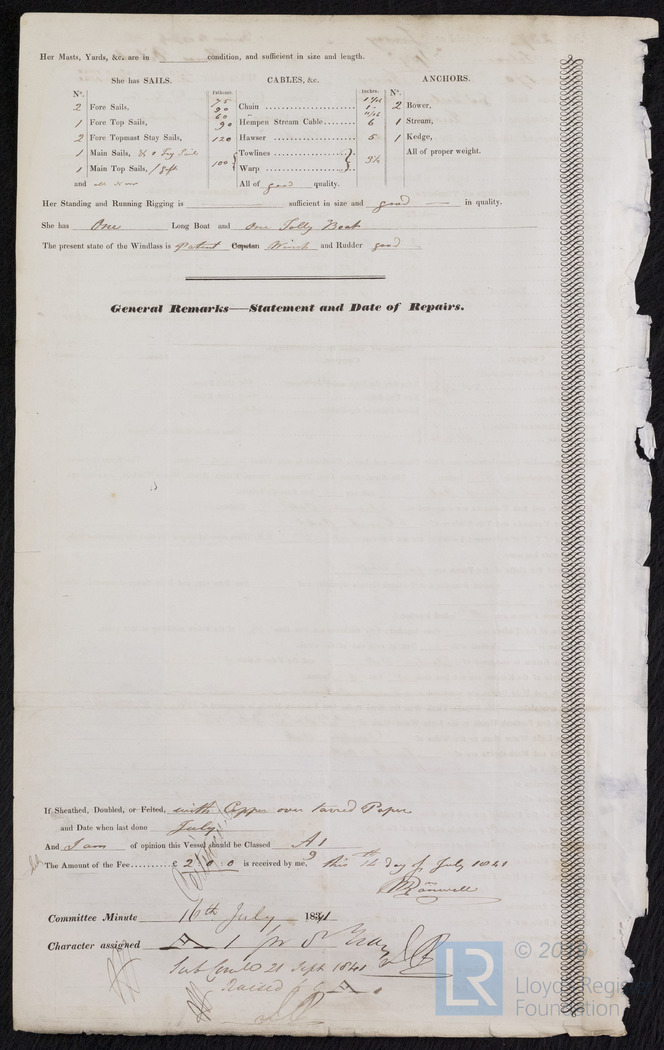 Her Masts, Yards, &c. are in condition, and sufficient in size and length.
She has SAILS. CABLES, &c. ANCHORS.
Nº. Fathoms. Inches. Nº.
2 Fore Sails, 75 90 Chain 1 2 Bower,
1 Fore Top Sails, 60 90 Hempen Stream Cable 11/16 6 1 Stream,
2 Fore Topmast Stay Sails, 120 Hawser 5 1 Kedge,
1 Main Sails, Towlines All of proper weight.
1 Main Top Sails, 100 Warp 3½
and All of good quality.
Her Standing and Running Rigging is sufficient in size and good in quality.
She has One Long Boat and one Jolly Boat
The present state of the Windlass is Patent Capstan Winch and Rudder good
General Remarks—Statement and Date of Repairs.
If Sheathed, Doubled, or Felted, with Copper over tarred Paper
and Date when last done July
And I am of opinion this Vessel should be Classed A1
The Amount of the Fee £ 2 : 0 : 0 is received by me, this 14th day of July 1841
Committee Minute 16th July 1841
Character assigned A 1 for 8 Years
Sub Comtee 21 Sept 1841
© 20
LR
Lloyd's Register
Foundation